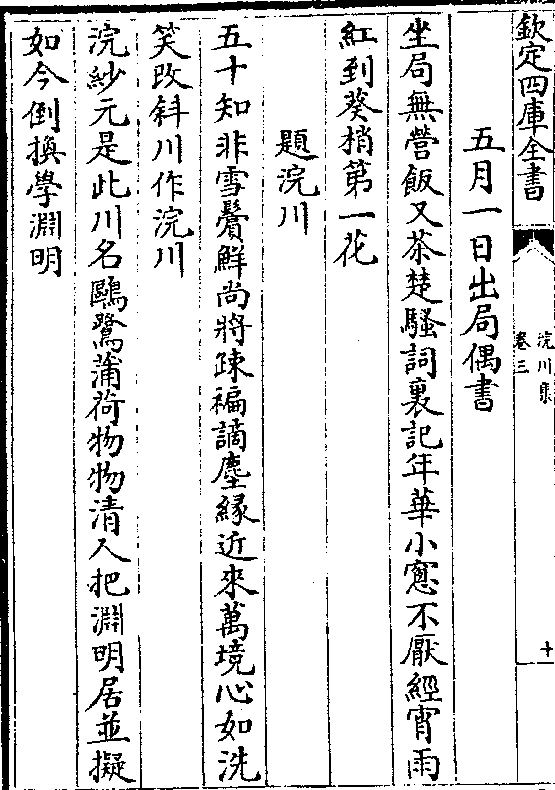 欽定四庫全書
浣川集
卷三
十
五月一日出局偶書
坐局無營飯又茶楚騷詞裏記年華小窻不厭經宵雨
紅到葵梢第一花
題浣川
五十知非雪鬢鮮尚將疎褊謫塵緣近來萬境心如洗
笑改斜川作浣川
浣紗元是此川名鷗鷺蒲荷物物清人把淵明居並擬
如今倒換學淵明